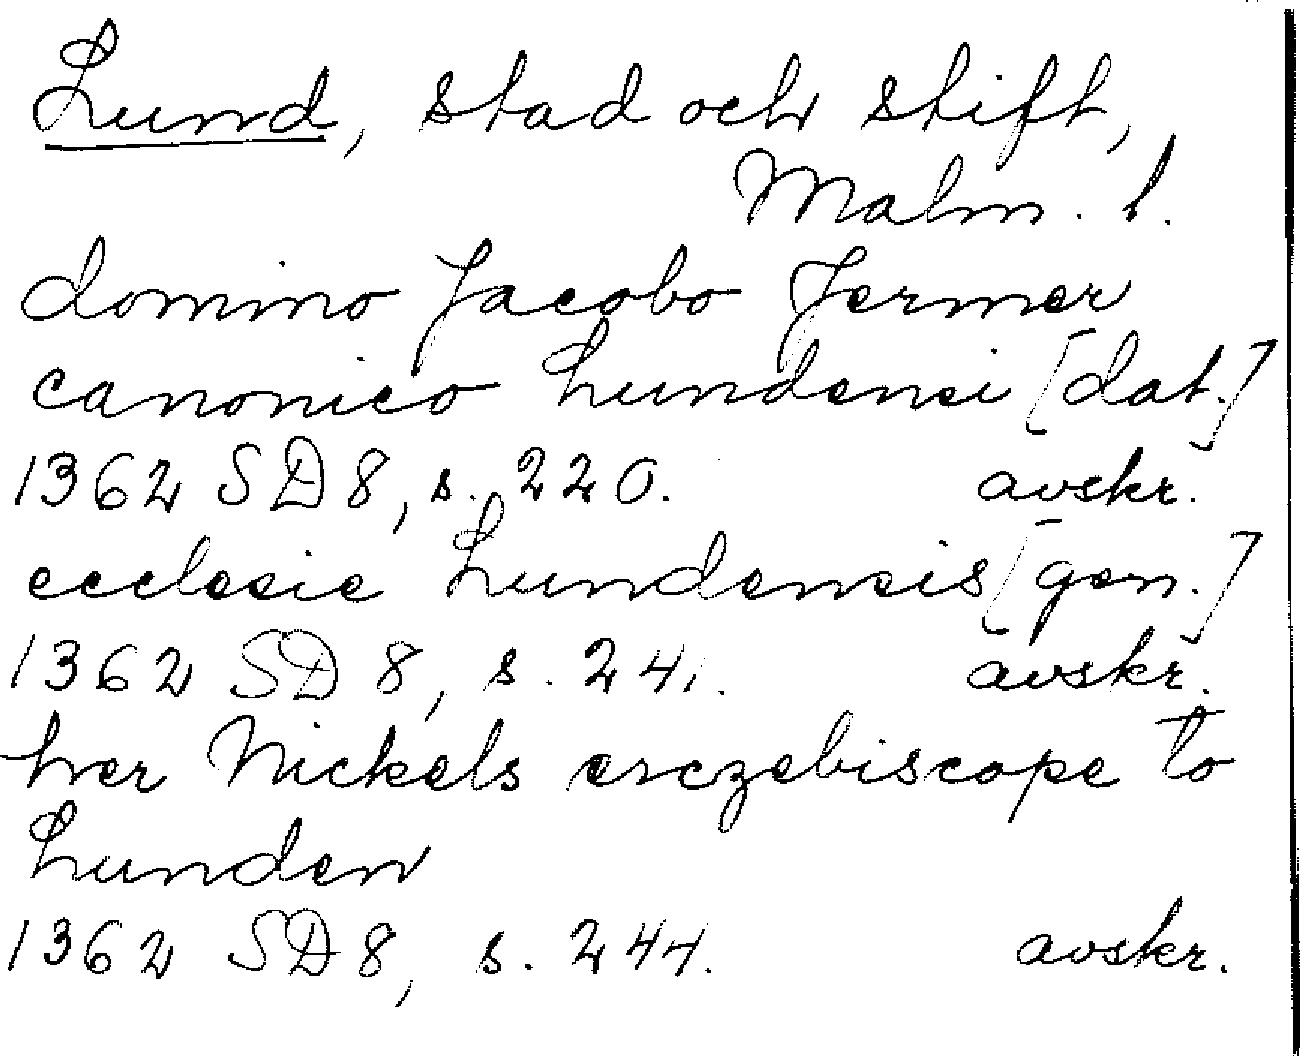 Lund, stad och stift,
Malm. l.
domino Jacobo Jermer
canonico Lundensi [dat.]
1362 SD 8, s. 220. avskr.
ecclesie Lundensis [gen.]
1362 SD 8, s. 241. avskr.
her Nickels erczebiscope to
Lunden
1362 SD 8, s. 244. avskr.